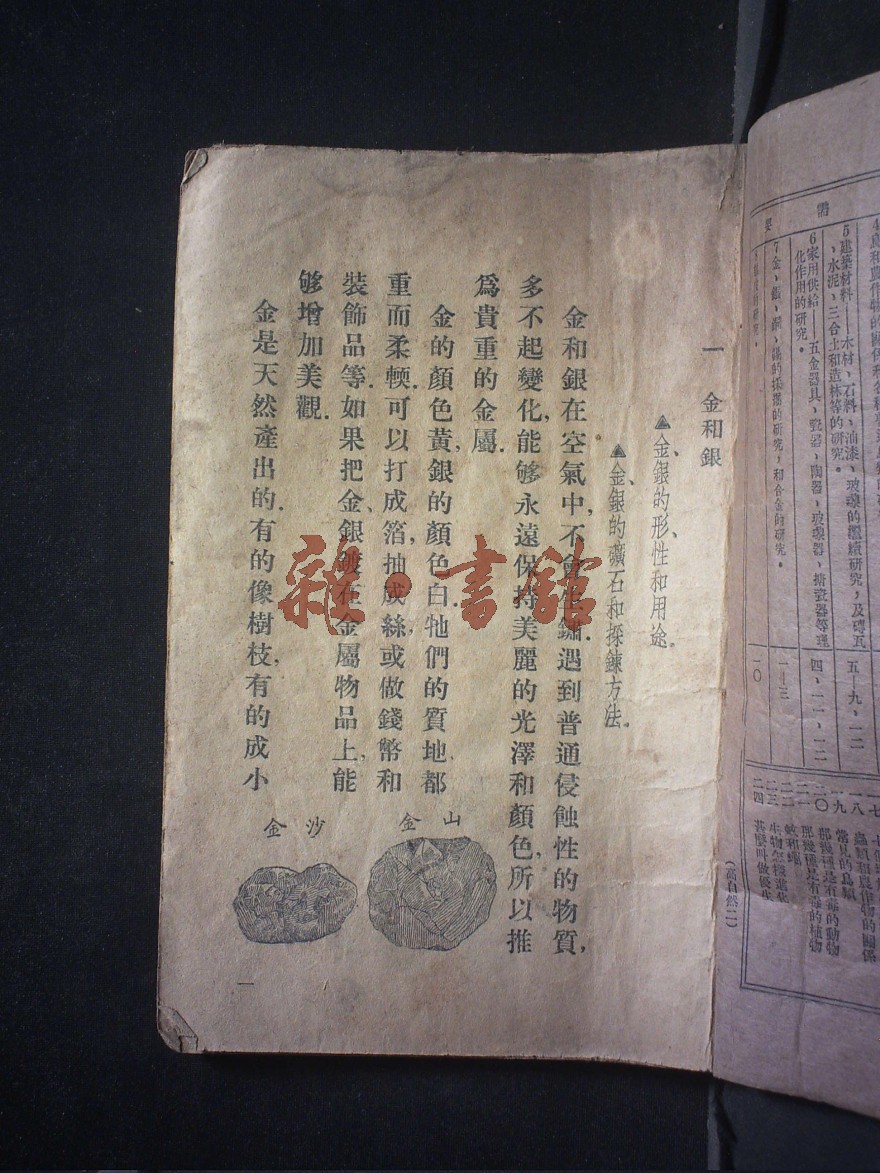 需
要
5 建築材料——木材、石料、油漆、玻璃的繼續研究，及磚瓦
、水泥、三合土和造林等的研究。
五、九、一二
6 家用供給——五金器具、瓷器、陶器、玻璃器、搪瓷器等理
化作用的研究。
四、一一、一二
7 金、銀、銅、錫的採冶的研究，和合金的研究。
一—三
一〇
常見的鳥類
那幾種是有益的動物
那幾種是有益的植物
蚊和蠅
生物怎樣進化
甚麼叫做優生
(高自然二)
一 金和銀
▲金、銀的形、性和用途。
▲金、銀的礦石和採鍊方法。
金和銀在空氣中，不會生鏽，遇到普通侵蝕性的物質，
多不起變化，能够永遠保持美麗的光澤和顏色，所以推
爲貴重的金屬．
金的顏色黃，銀的顏色白．牠們的質地，都
重而柔輭，可以打成箔，抽成絲，或做錢幣和
裝飾品等．如果把金、銀鍍在金屬物品上，能
够增加美觀．
金是天然產出的．有的像樹枝，有的成小
山金
沙金
一
雜·書館